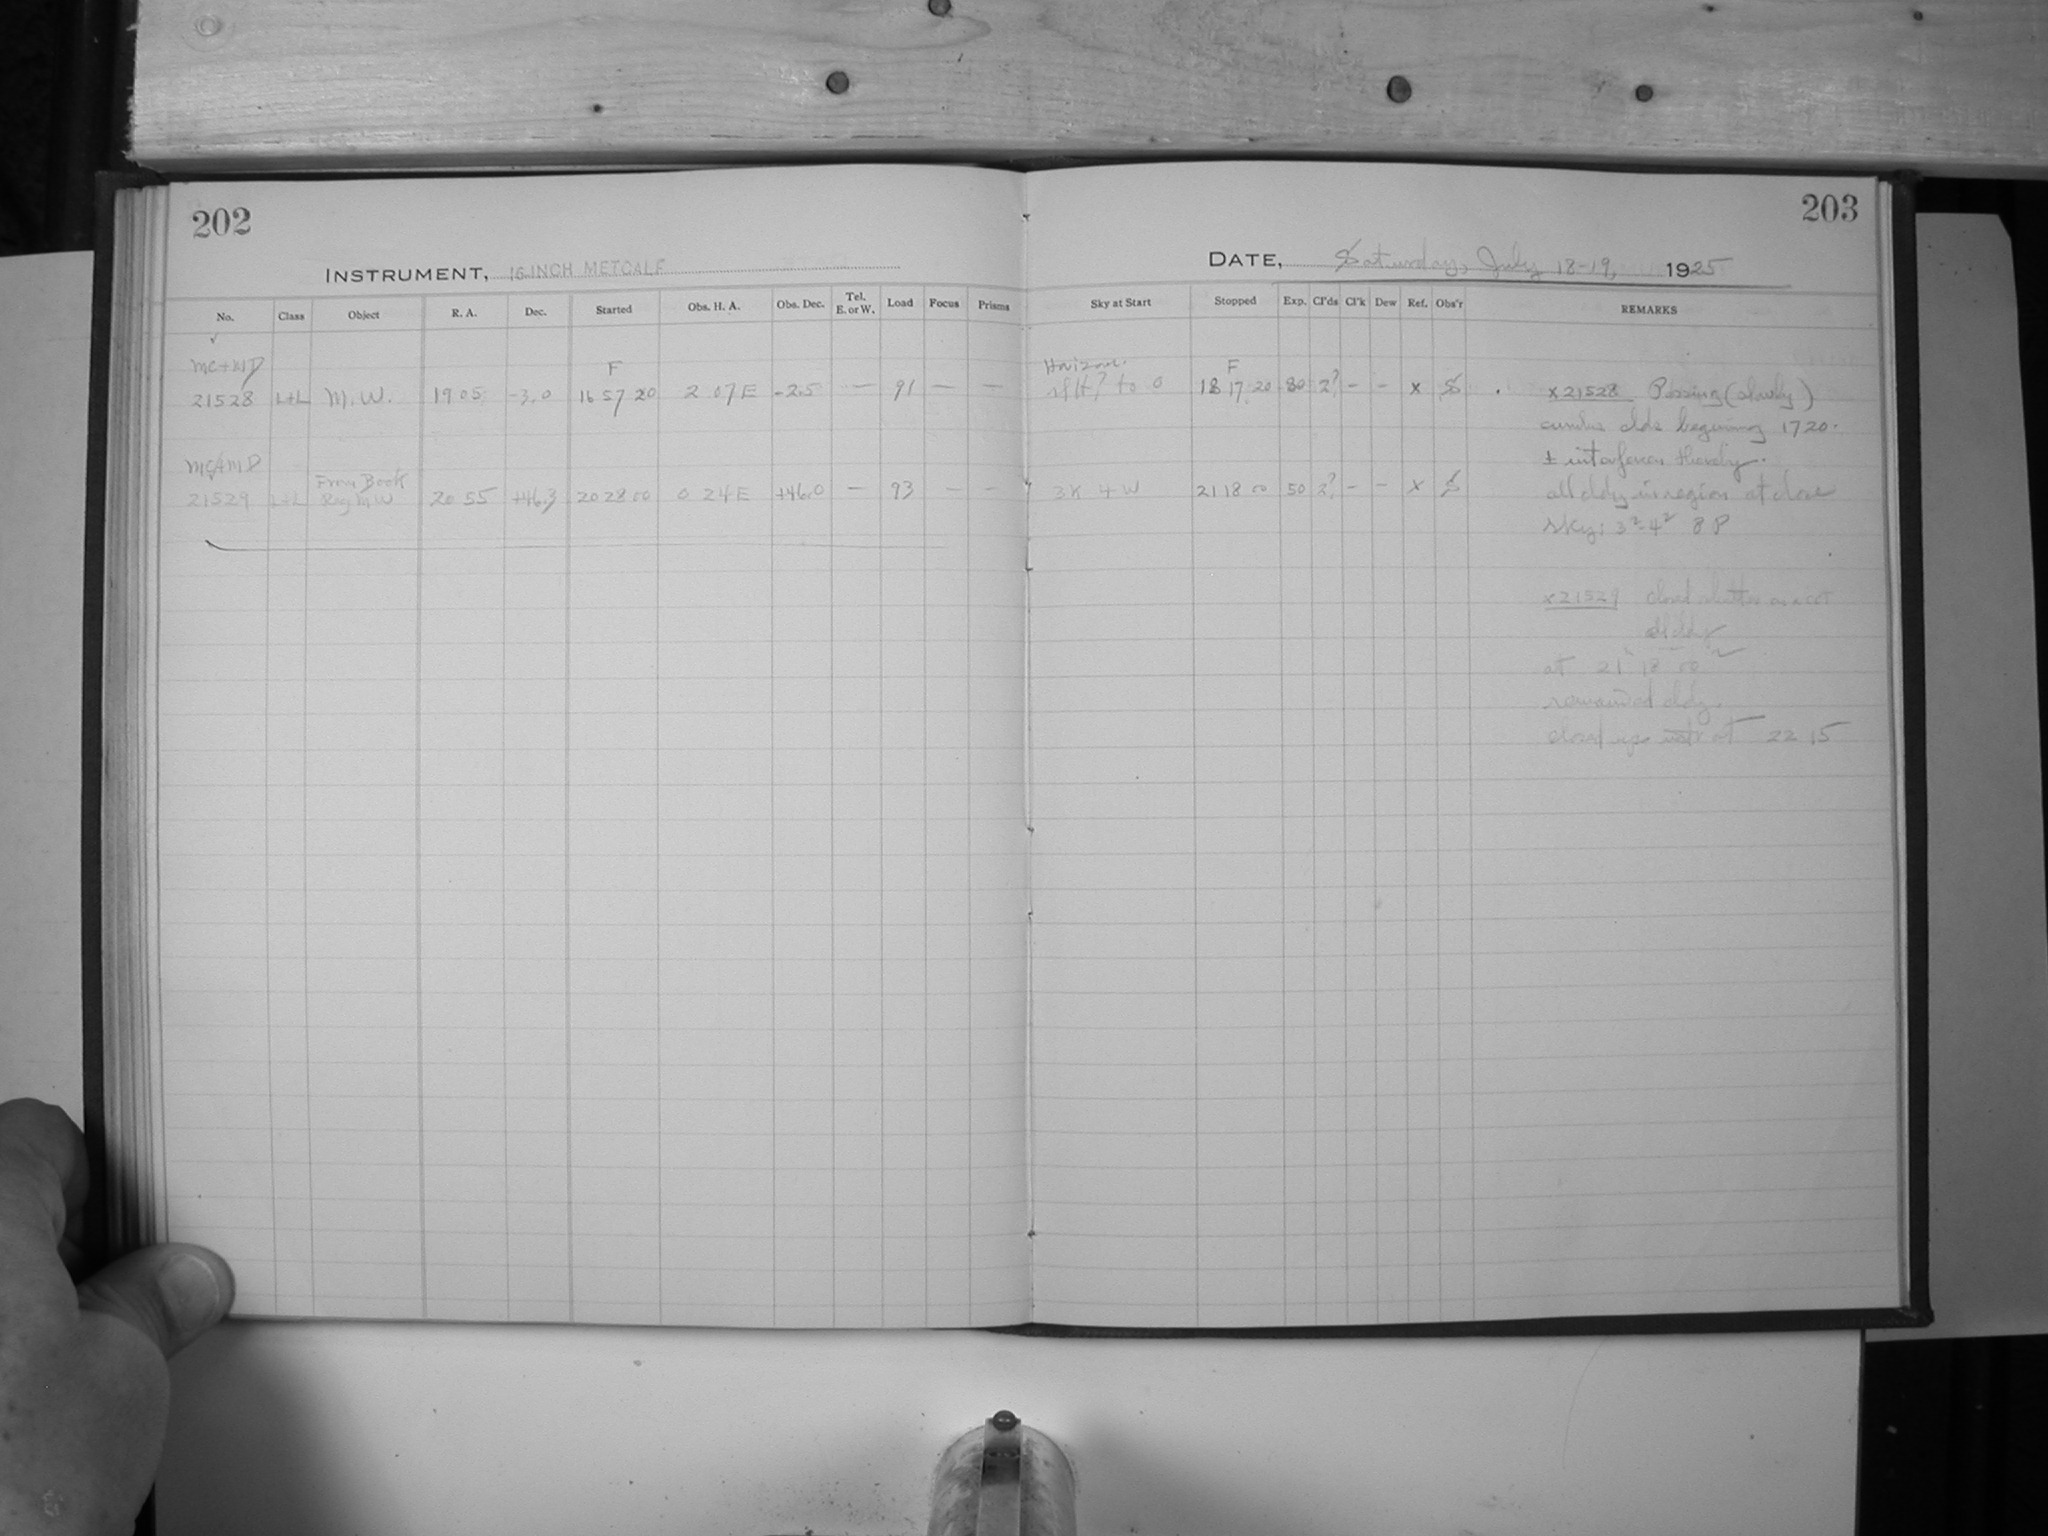 202
203
INSTRUMENT, 16 INCH METCALF
DATE, Saturday, July 18-19, 1925
No. Class Object R. A. Dec. Started Obs. H. A. Obs. Dec. Tel. E. or W. Load Focus Prisms
Sky at Start Stopped Exp. Cl'ds Cl'k Dew Ref. Obs'r REMARKS
MC+MD F
21528 L+L M. W. 19 05 -3.0 16 57 20 2 07 E -2.5 — 91 — —
F
to 0 18 17 20 80 2? - - x S
x 21528 Passing (slowly)
cumulus clds beginning 1720.
± interference thereby.
MC+MD From Book
21529 L+L Reg M W 20 55 +46.3 20 28 00 0 24 E +46.0 — 93 — —
3K 4W 21 18 00 50 2? - - x S
all cldy in region at close
sky: 3²-4² 8 P
x 21529 closed shutter on acct
of cldy
at 21 18 00
remained cldy.
closed up instr at 22 15